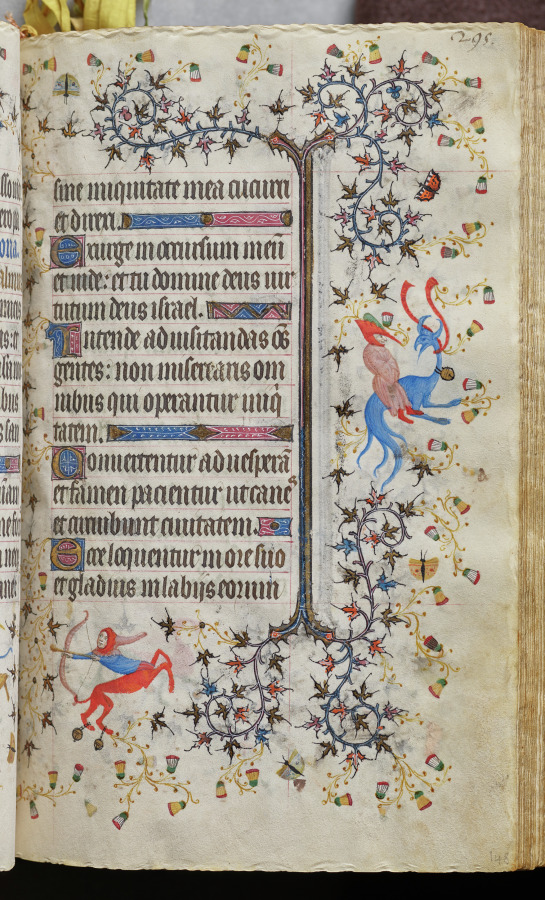 295.
sine iniquitate mea cucurri
et direxi.
Exurge in occursum meū
et uide: et tu domine deus uir
tutum deus israel.
Intende ad uisitandas oēs
gentes: non miserearis om
nibus qui operantur iniqui
tatem.
Conuertentur ad uesperā
et famen pacientur ut canes
et circuibunt ciuitatem.
Ecce loquentur in ore suo
et gladius in labijs eorum
148